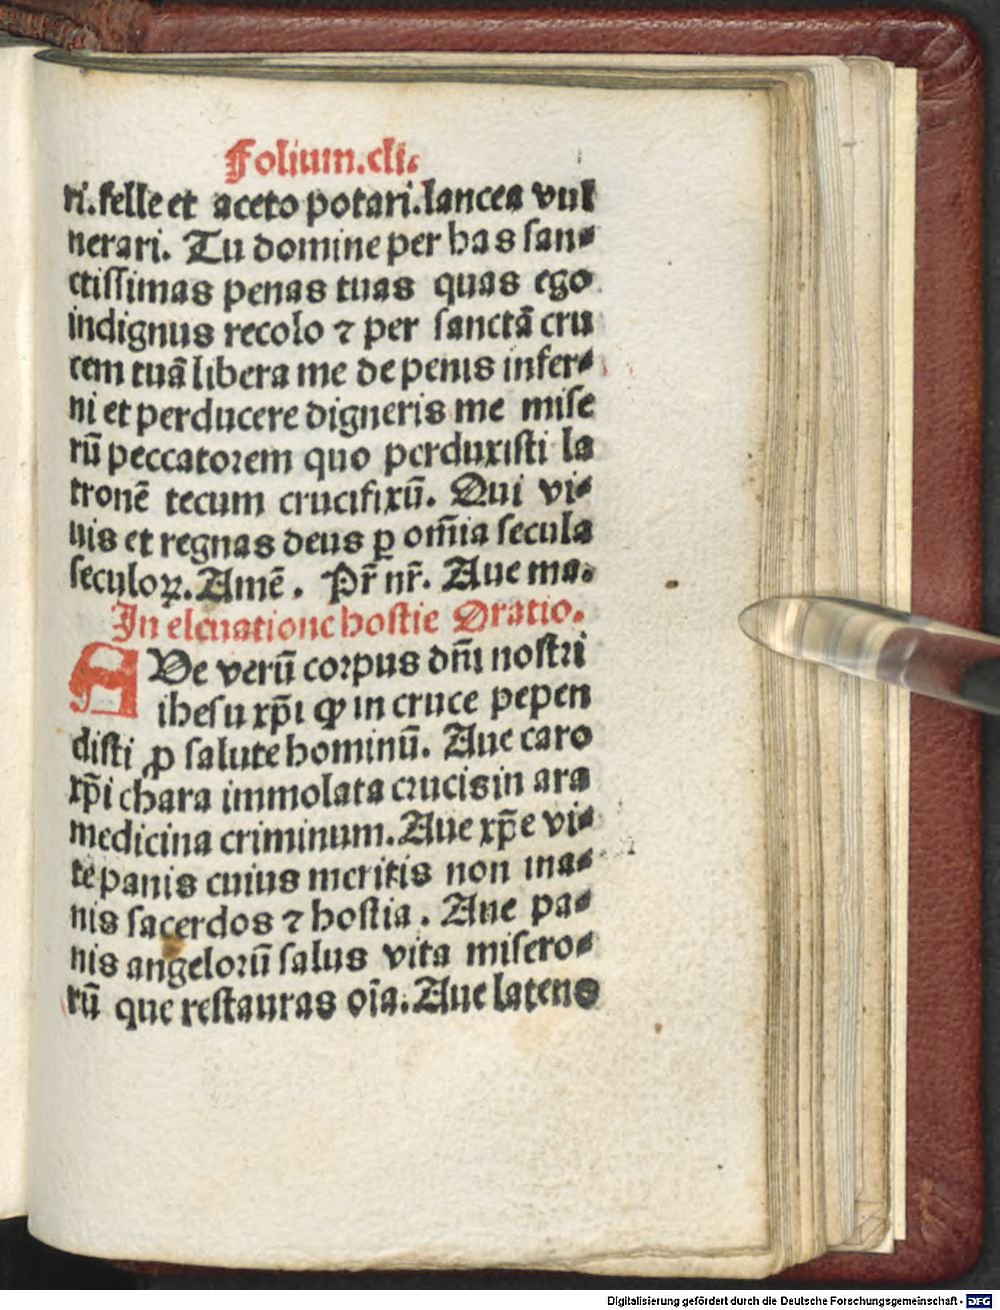 Folium.cli.
ri.felle et aceto potari.lancea vul
nerari. Tu domine per has san⸗
ctissimas penas tuas quas ego
indignus recolo ⁊ per sanctā cru
cem tuā libera me de penis infer⸗
ni et perducere digneris me mise
rū peccatorem quo perduxisti la
tronē tecum crucifixū. Qui vi⸗
uis et regnas deus ꝑ om̄ia secula
seculoꝝ. Amē. Pr̄ nr̄. Aue ma.
In eleuatione hostie Oratio.
AUe verū corpus dn̄i nostri
ihesu xp̄i ꝙ in cruce pepen
disti ꝓ salute hominū. Aue caro
xp̄i chara immolata crucis in ara
medicina criminum. Aue xp̄e vi⸗
te panis cuius meritis non ina⸗
nis sacerdos ⁊ hostia. Aue pa⸗
nis angelorū salus vita misero⸗
rū que restauras oīa. Aue latens
Digitalisierung gefördert durch die Deutsche Forschungsgemeinschaft - DFG